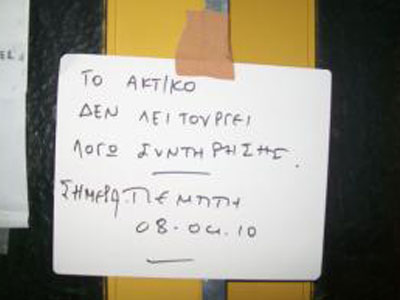 ΤΟ ΑΚΤΙΚΟ
ΔΕΝ ΛΕΙΤΟΥΡΓΕΙ
ΛΟΓΩ ΣΥΝΤΗΡΗΣΗΣ.
ΣΗΜΕΡΑ ΠΕΜΠΤΗ
08.04.10